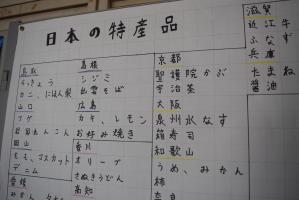 日本の特産品
鳥取
らっきょう
カニ、にほん梨
山口
フグ
岩国れんこん
岡山
もも、マスカット
デニム
愛媛
みかん
島根
シジミ
出雲そば
広島
カキ、レモン
お好み焼き
香川
オリーブ
さぬきうどん
高知
京都
聖護院かぶ
宇治茶
大阪
泉州水なす
箱寿司
和歌山
うめ、みかん
柿
奈良
滋賀
近江牛
ふなずし
兵庫
たまねぎ
醤油